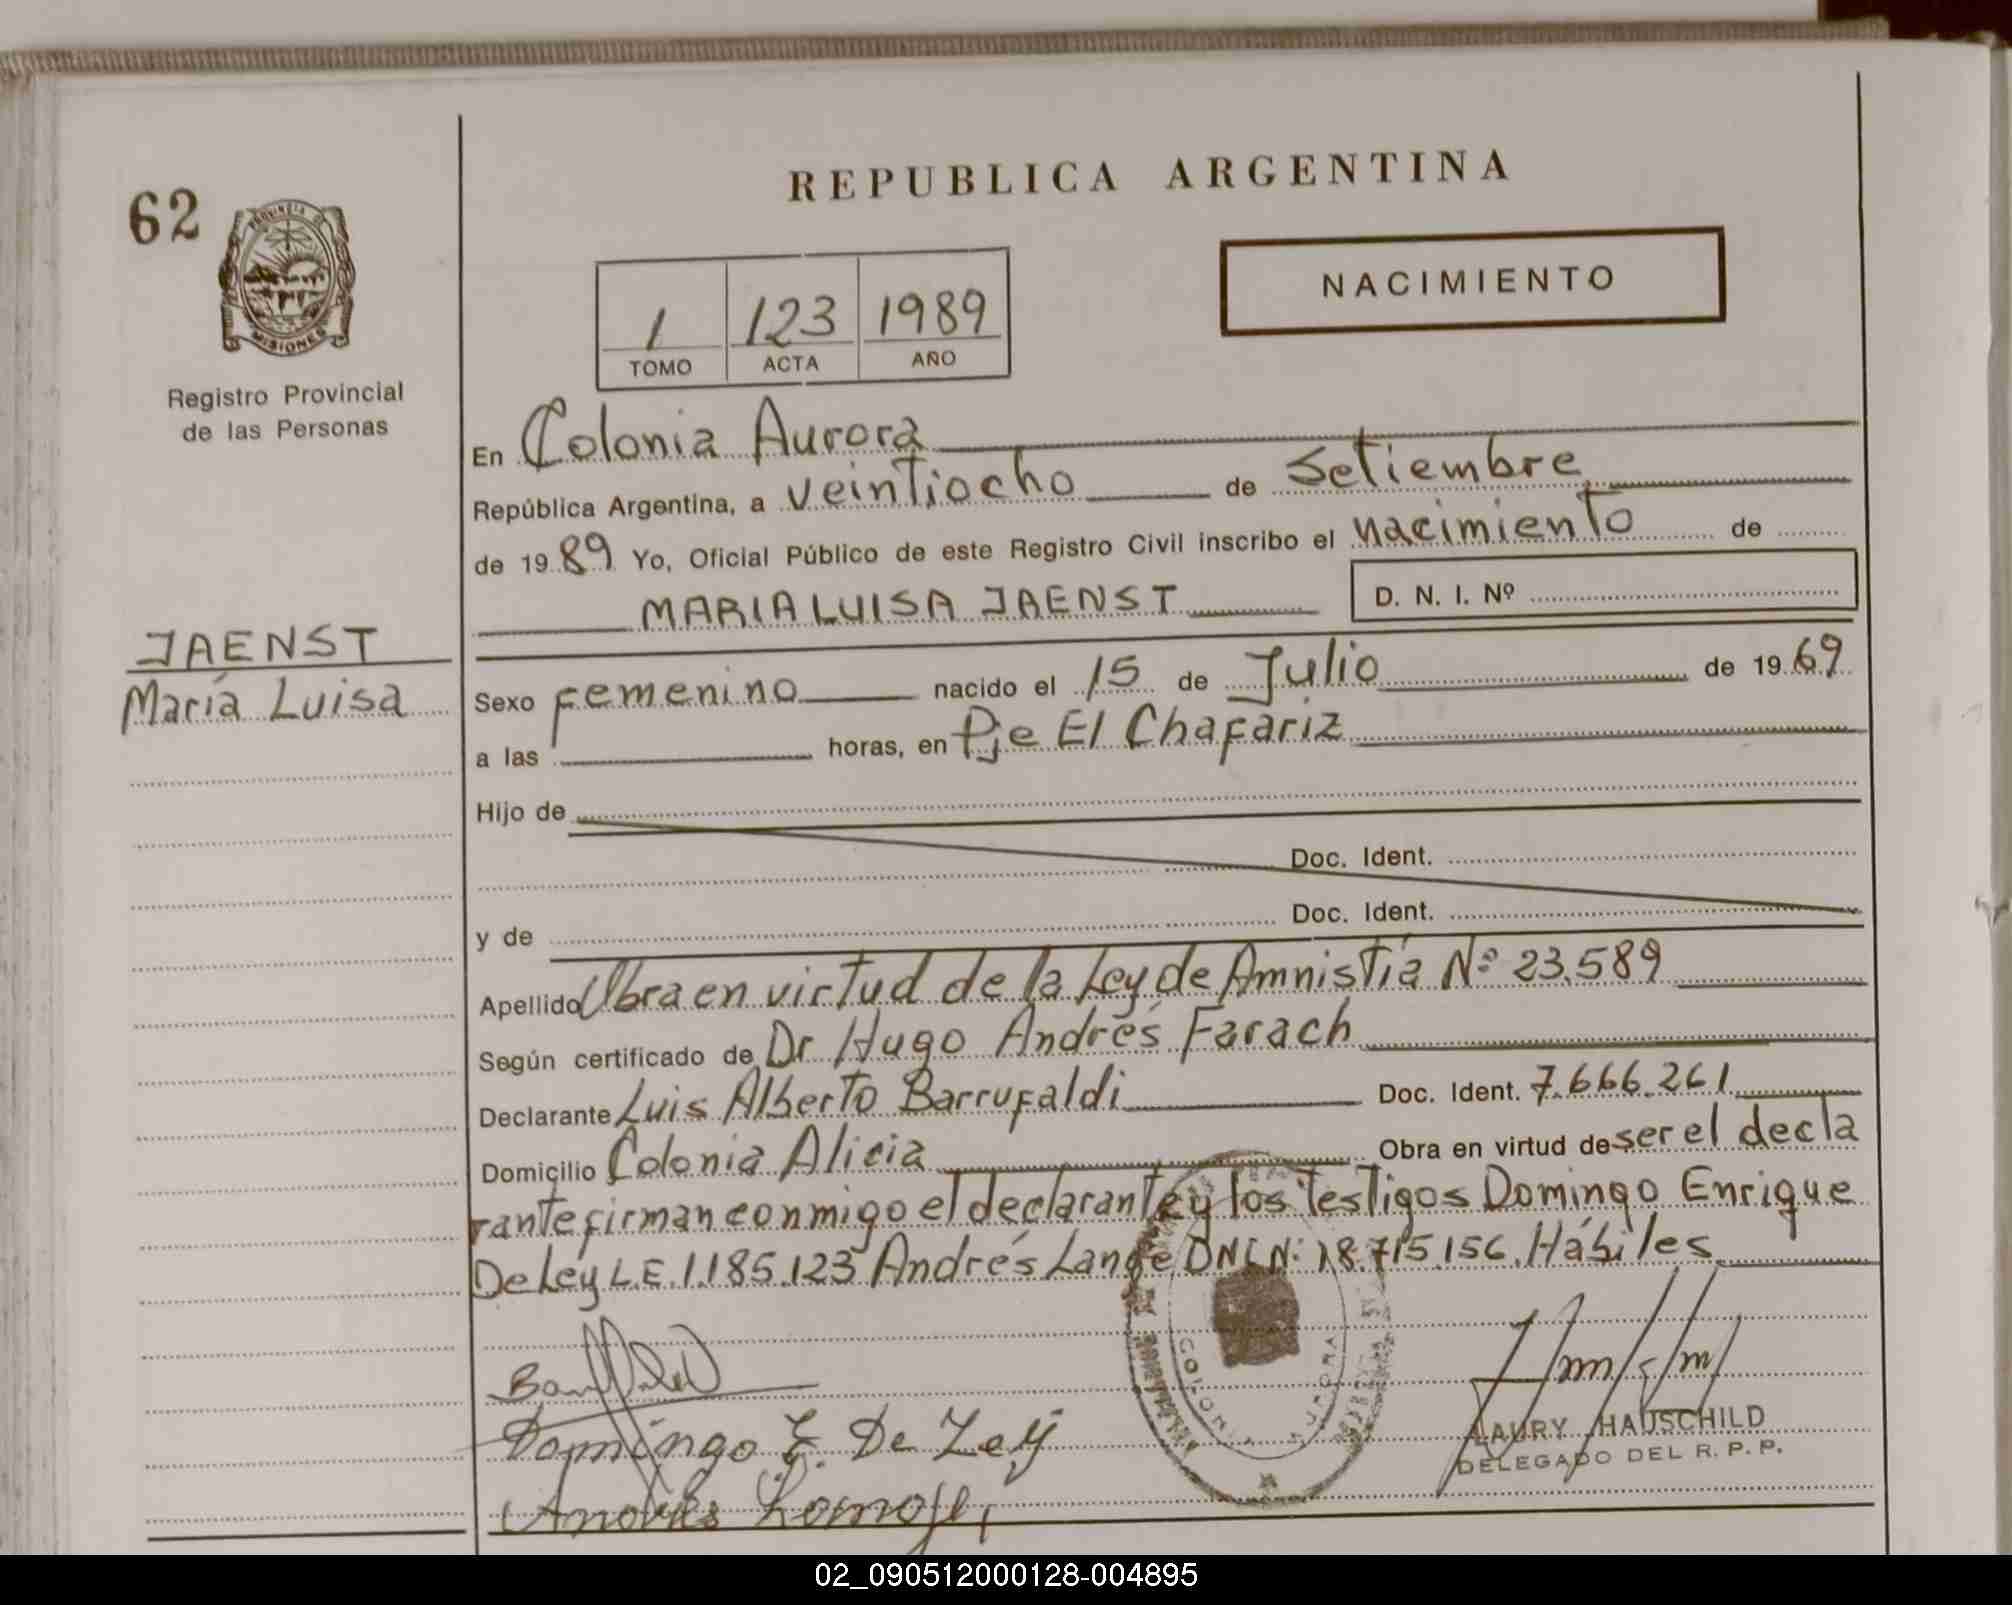 REPUBLICA ARGENTINA
62
PROVINCIA DE
MISIONES
Registro Provincial
de las Personas
NACIMIENTO
1 123 1989
TOMO ACTA AÑO
En Colonia Aurora
República Argentina, a veintiocho de Setiembre
de 1989 Yo, Oficial Público de este Registro Civil inscribo el nacimiento de
MARIA LUISA JAENST D. N. I. Nº
JAENST
María Luisa
Sexo femenino nacido el 15 de Julio de 1969
a las horas, en Pje El Chafariz
Hijo de
Doc. Ident.
y de Doc. Ident.
Apellido Obra en virtud de la Ley de Amnistía Nº 23.589
Según certificado de Dr Hugo Andrés Farach
Declarante Luis Alberto Barrufaldi Doc. Ident. 7.666.261
Domicilio Colonia Alicia Obra en virtud de ser el decla
rante firman conmigo el declarante y los testigos Domingo Enrique
De Ley L.E. 1.185.123 Andrés Lange DNI N: 18.715.156. Hábiles
COLONIA AURORA
Domingo E. De Ley
Andrés
LAURY HAUSCHILD
DELEGADO DEL R. P. P.
02_090512000128-004895